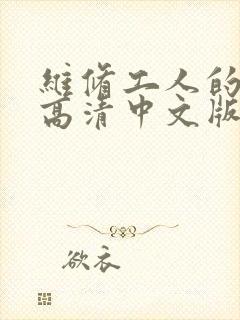 維脩工人的
高清中文版
欲衣